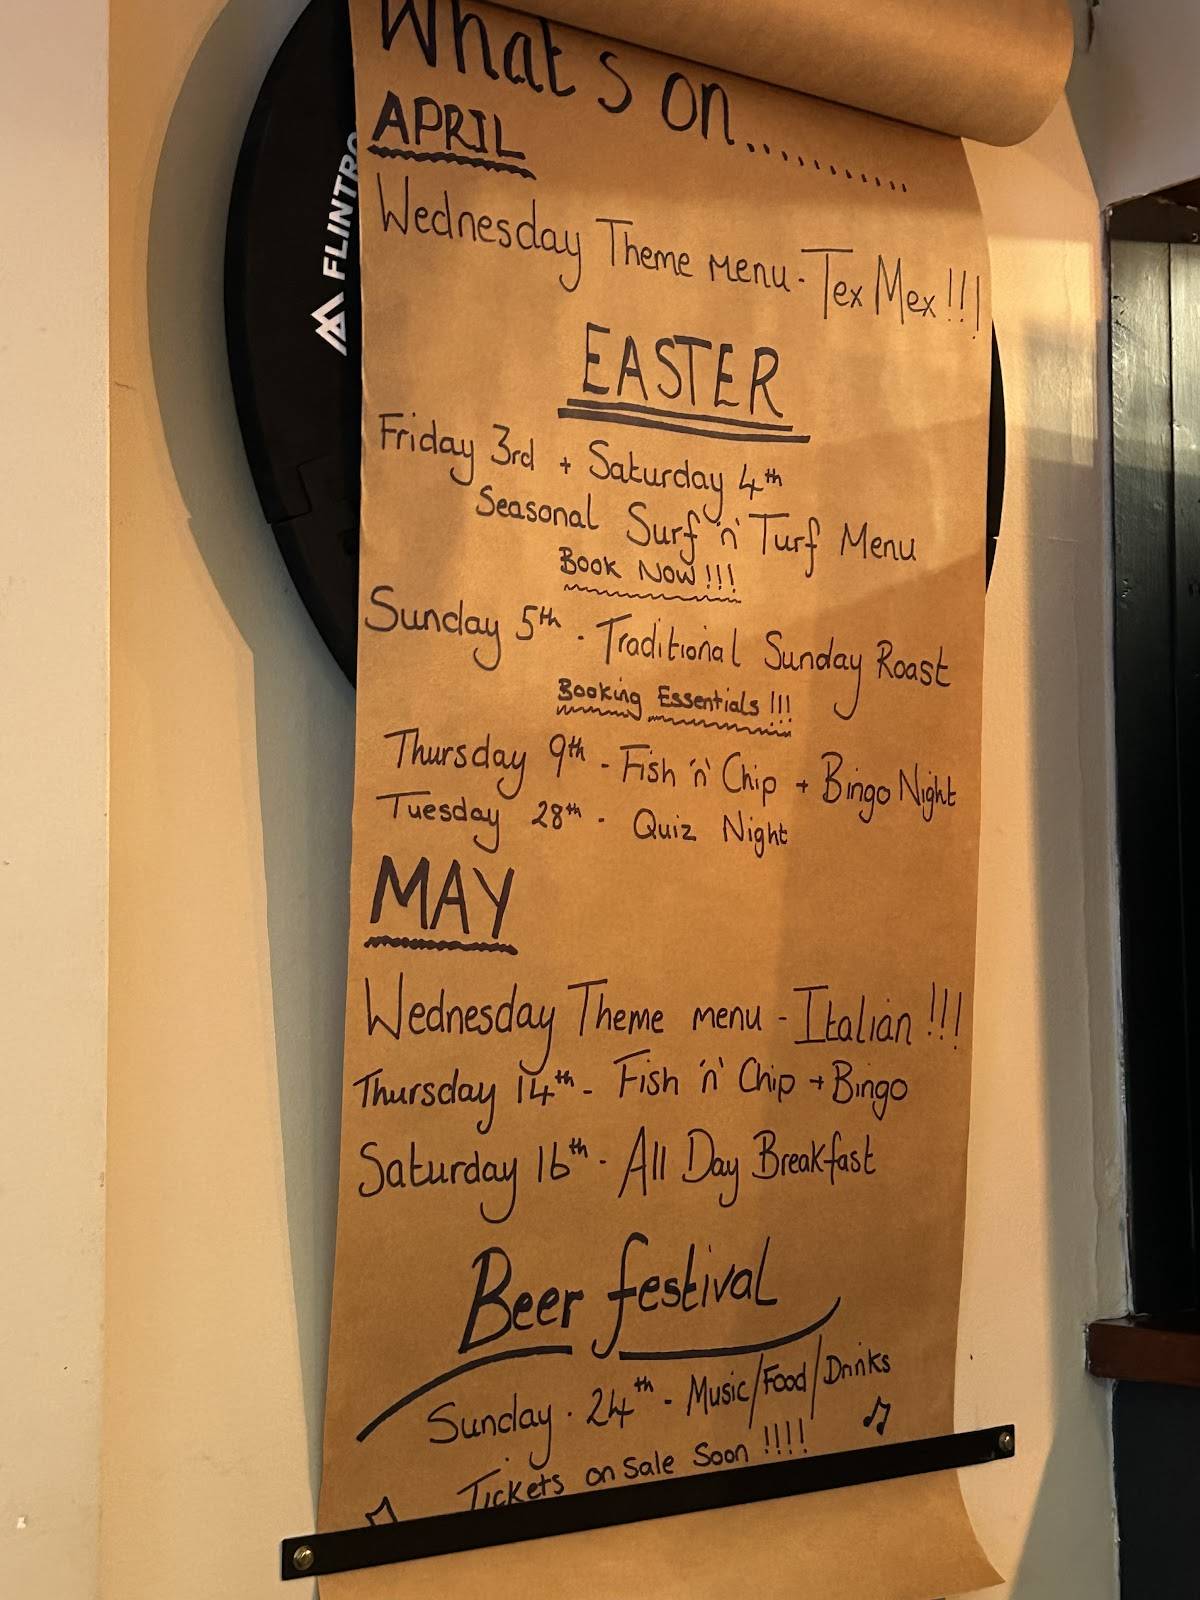 What's on..........
APRIL
Wednesday Theme menu - Tex Mex !!!
EASTER
Friday 3rd + Saturday 4th
Seasonal Surf 'n' Turf Menu
Book Now !!!
Sunday 5th - Traditional Sunday Roast
Booking Essentials !!!
Thursday 9th - Fish 'n' Chip + Bingo Night
Tuesday 28th - Quiz Night
MAY
Wednesday Theme menu - Italian !!!
Thursday 14th - Fish 'n' Chip + Bingo
Saturday 16th - All Day Breakfast
Beer festival
Sunday. 24th - Music/Food/Drinks
Tickets on Sale Soon !!!!
FLINTRO